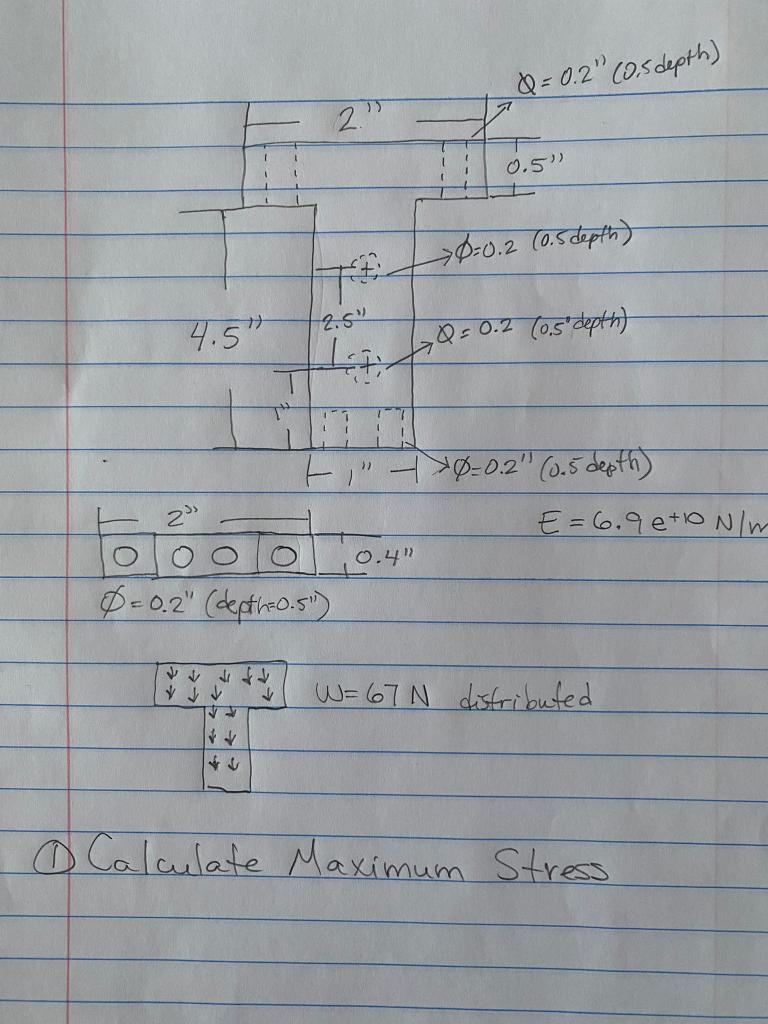 Q = 0.2" (0.5 depth)
2"
0.5"
Ø=0.2 (0.5 depth)
4.5"
2.5"
Q = 0.2 (0.5" depth)
1"
1"
Ø=0.2" (0.5 depth)
2"
E = 6.9 e+10 N/m
0.4"
Ø = 0.2" (depth=0.5")
W = 67 N distributed
① Calculate Maximum Stress